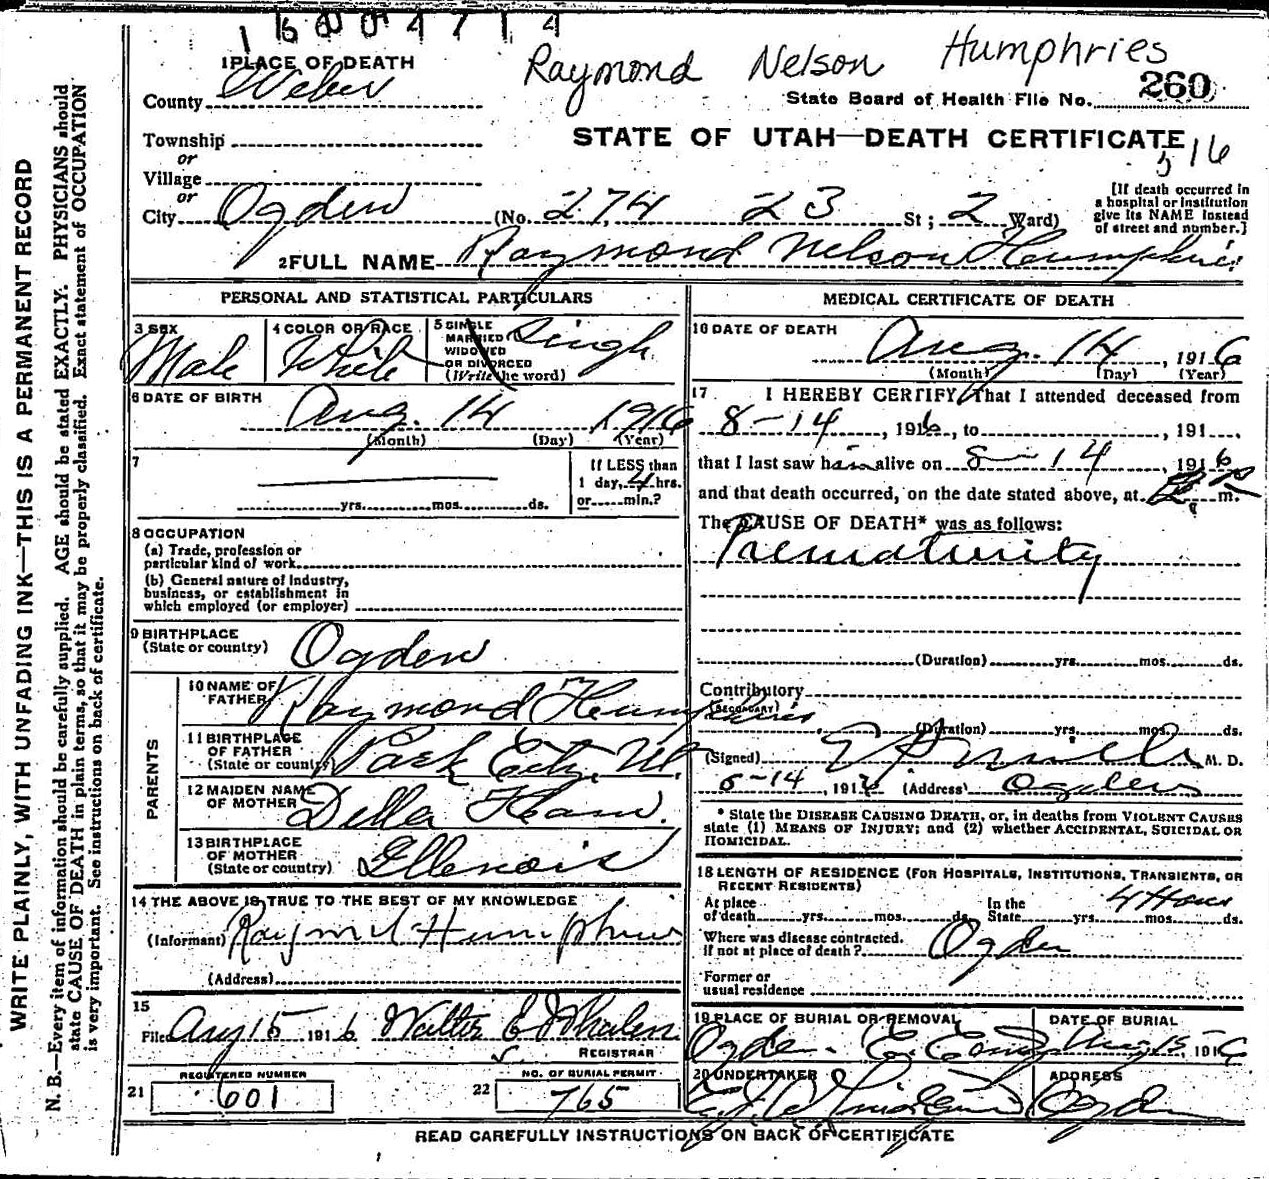 16004714
Raymond Nelson Humphries
1 PLACE OF DEATH
County Weber
State Board of Health File No. 260
STATE OF UTAH—DEATH CERTIFICATE
516
Township
or
Village
or
City Ogden (No. 274 23 St; 2 Ward)
[If death occurred in
a hospital or institution
give its NAME instead
of street and number.]
2 FULL NAME Raymond Nelson Humphries
PERSONAL AND STATISTICAL PARTICULARS
3 SEX Male
4 COLOR OR RACE White
5 SINGLE
MARRIED
WIDOWED
OR DIVORCED
(Write the word) Single
6 DATE OF BIRTH Aug. 14 1916
(Month) (Day) (Year)
7
yrs. mos. ds.
If LESS than
1 day, 4 hrs.
or min.?
8 OCCUPATION
(a) Trade, profession or
particular kind of work
(b) General nature of industry,
business, or establishment in
which employed (or employer)
9 BIRTHPLACE
(State or country) Ogden
PARENTS
10 NAME OF
FATHER Raymond Humphries
11 BIRTHPLACE
OF FATHER
(State or country) Park City, Ut.
12 MAIDEN NAME
OF MOTHER Della
13 BIRTHPLACE
OF MOTHER
(State or country) Illenois
14 THE ABOVE IS TRUE TO THE BEST OF MY KNOWLEDGE
(Informant) Raymond Humphries
(Address)
15
Filed Aug 15 1916 Walter E Whalen
REGISTRAR
REGISTERED NUMBER
21 601
NO. OF BURIAL PERMIT
22 765
MEDICAL CERTIFICATE OF DEATH
16 DATE OF DEATH
Aug. 14, 1916
(Month) (Day) (Year)
17 I HEREBY CERTIFY, That I attended deceased from
8-14, 1916, to , 191 .
that I last saw him alive on 8-14, 1916
and that death occurred, on the date stated above, at m.
The CAUSE OF DEATH* was as follows:
Prematurity
(Duration) yrs. mos. ds.
Contributory
(SECONDARY)
(Duration) yrs. mos. ds.
(Signed) M. D.
8-14, 1916 (Address) Ogden
* State the DISEASE CAUSING DEATH, or, in deaths from VIOLENT CAUSES
state (1) MEANS OF INJURY; and (2) whether ACCIDENTAL, SUICIDAL OR
HOMICIDAL.
18 LENGTH OF RESIDENCE (FOR HOSPITALS, INSTITUTIONS, TRANSIENTS, OR
RECENT RESIDENTS)
At place
of death yrs. mos. ds.
In the
State yrs. mos. ds. 4 Hours
Where was disease contracted.
if not at place of death? Ogden
Former or
usual residence
19 PLACE OF BURIAL OR REMOVAL
Ogden
DATE OF BURIAL
Aug 15, 1916
20 UNDERTAKER
ADDRESS
Ogden
READ CAREFULLY INSTRUCTIONS ON BACK OF CERTIFICATE
WRITE PLAINLY, WITH UNFADING INK—THIS IS A PERMANENT RECORD
N. B.—Every item of information should be carefully supplied. AGE should be stated EXACTLY. PHYSICIANS should
state CAUSE OF DEATH in plain terms, so that it may be properly classified. Exact statement of OCCUPATION
is very important. See instructions on back of certificate.